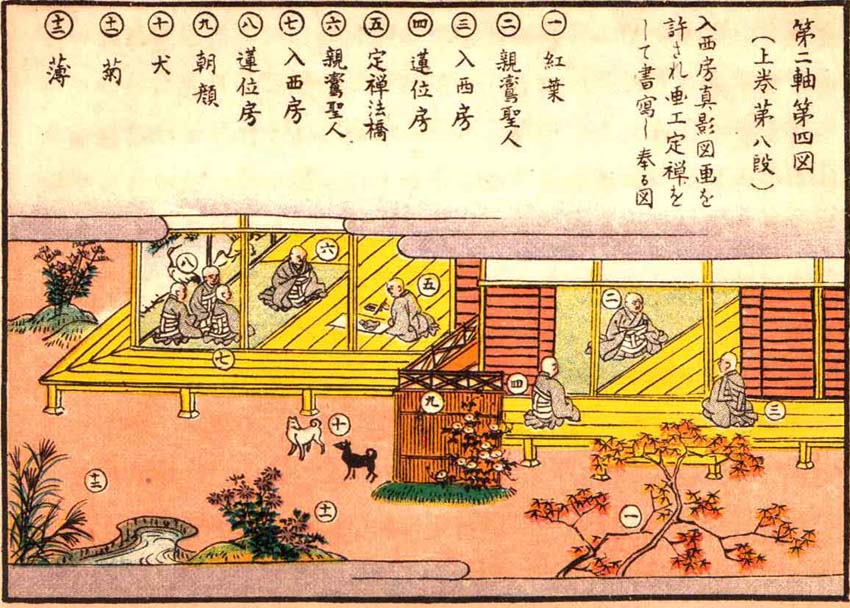 第二軸第四図
(上巻第八段)
入西房真影図画を
許され画工定禅を
して書寫し奉る図
一 紅葉
二 親鸞聖人
三 入西房
四 蓮位房
五 定禅法橋
六 親鸞聖人
七 入西房
八 蓮位房
九 朝顔
十 犬
十一 菊
十二 薄
八
六
五
七
二
四
三
九
十
十二
十一
一